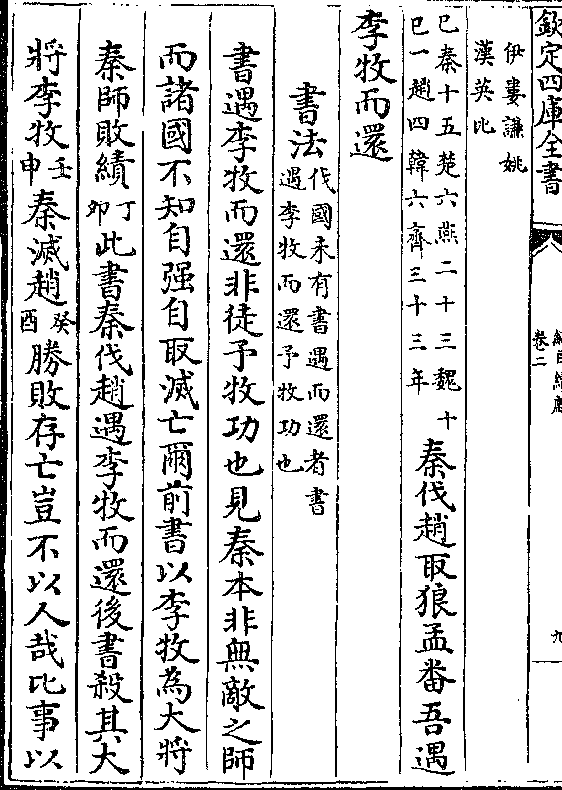 欽定四庫全書
卷二
九
伊婁謙姚
漢英比
己秦十五楚六燕二十三魏十
巳一趙四韓六齊三十三年
秦伐趙取狼孟番吾遇
李牧而還
書法
伐國未有書遇而還者書
遇李牧而還予牧功也
書遇李牧而還非徒予牧功也見秦本非無敵之師
而諸國不知自强自取滅亡爾前書以李牧為大將
秦師敗績丁卯此書秦伐趙遇李牧而還後書殺其大
將李牧壬申秦滅趙癸酉勝敗存亡豈不以人哉比事以